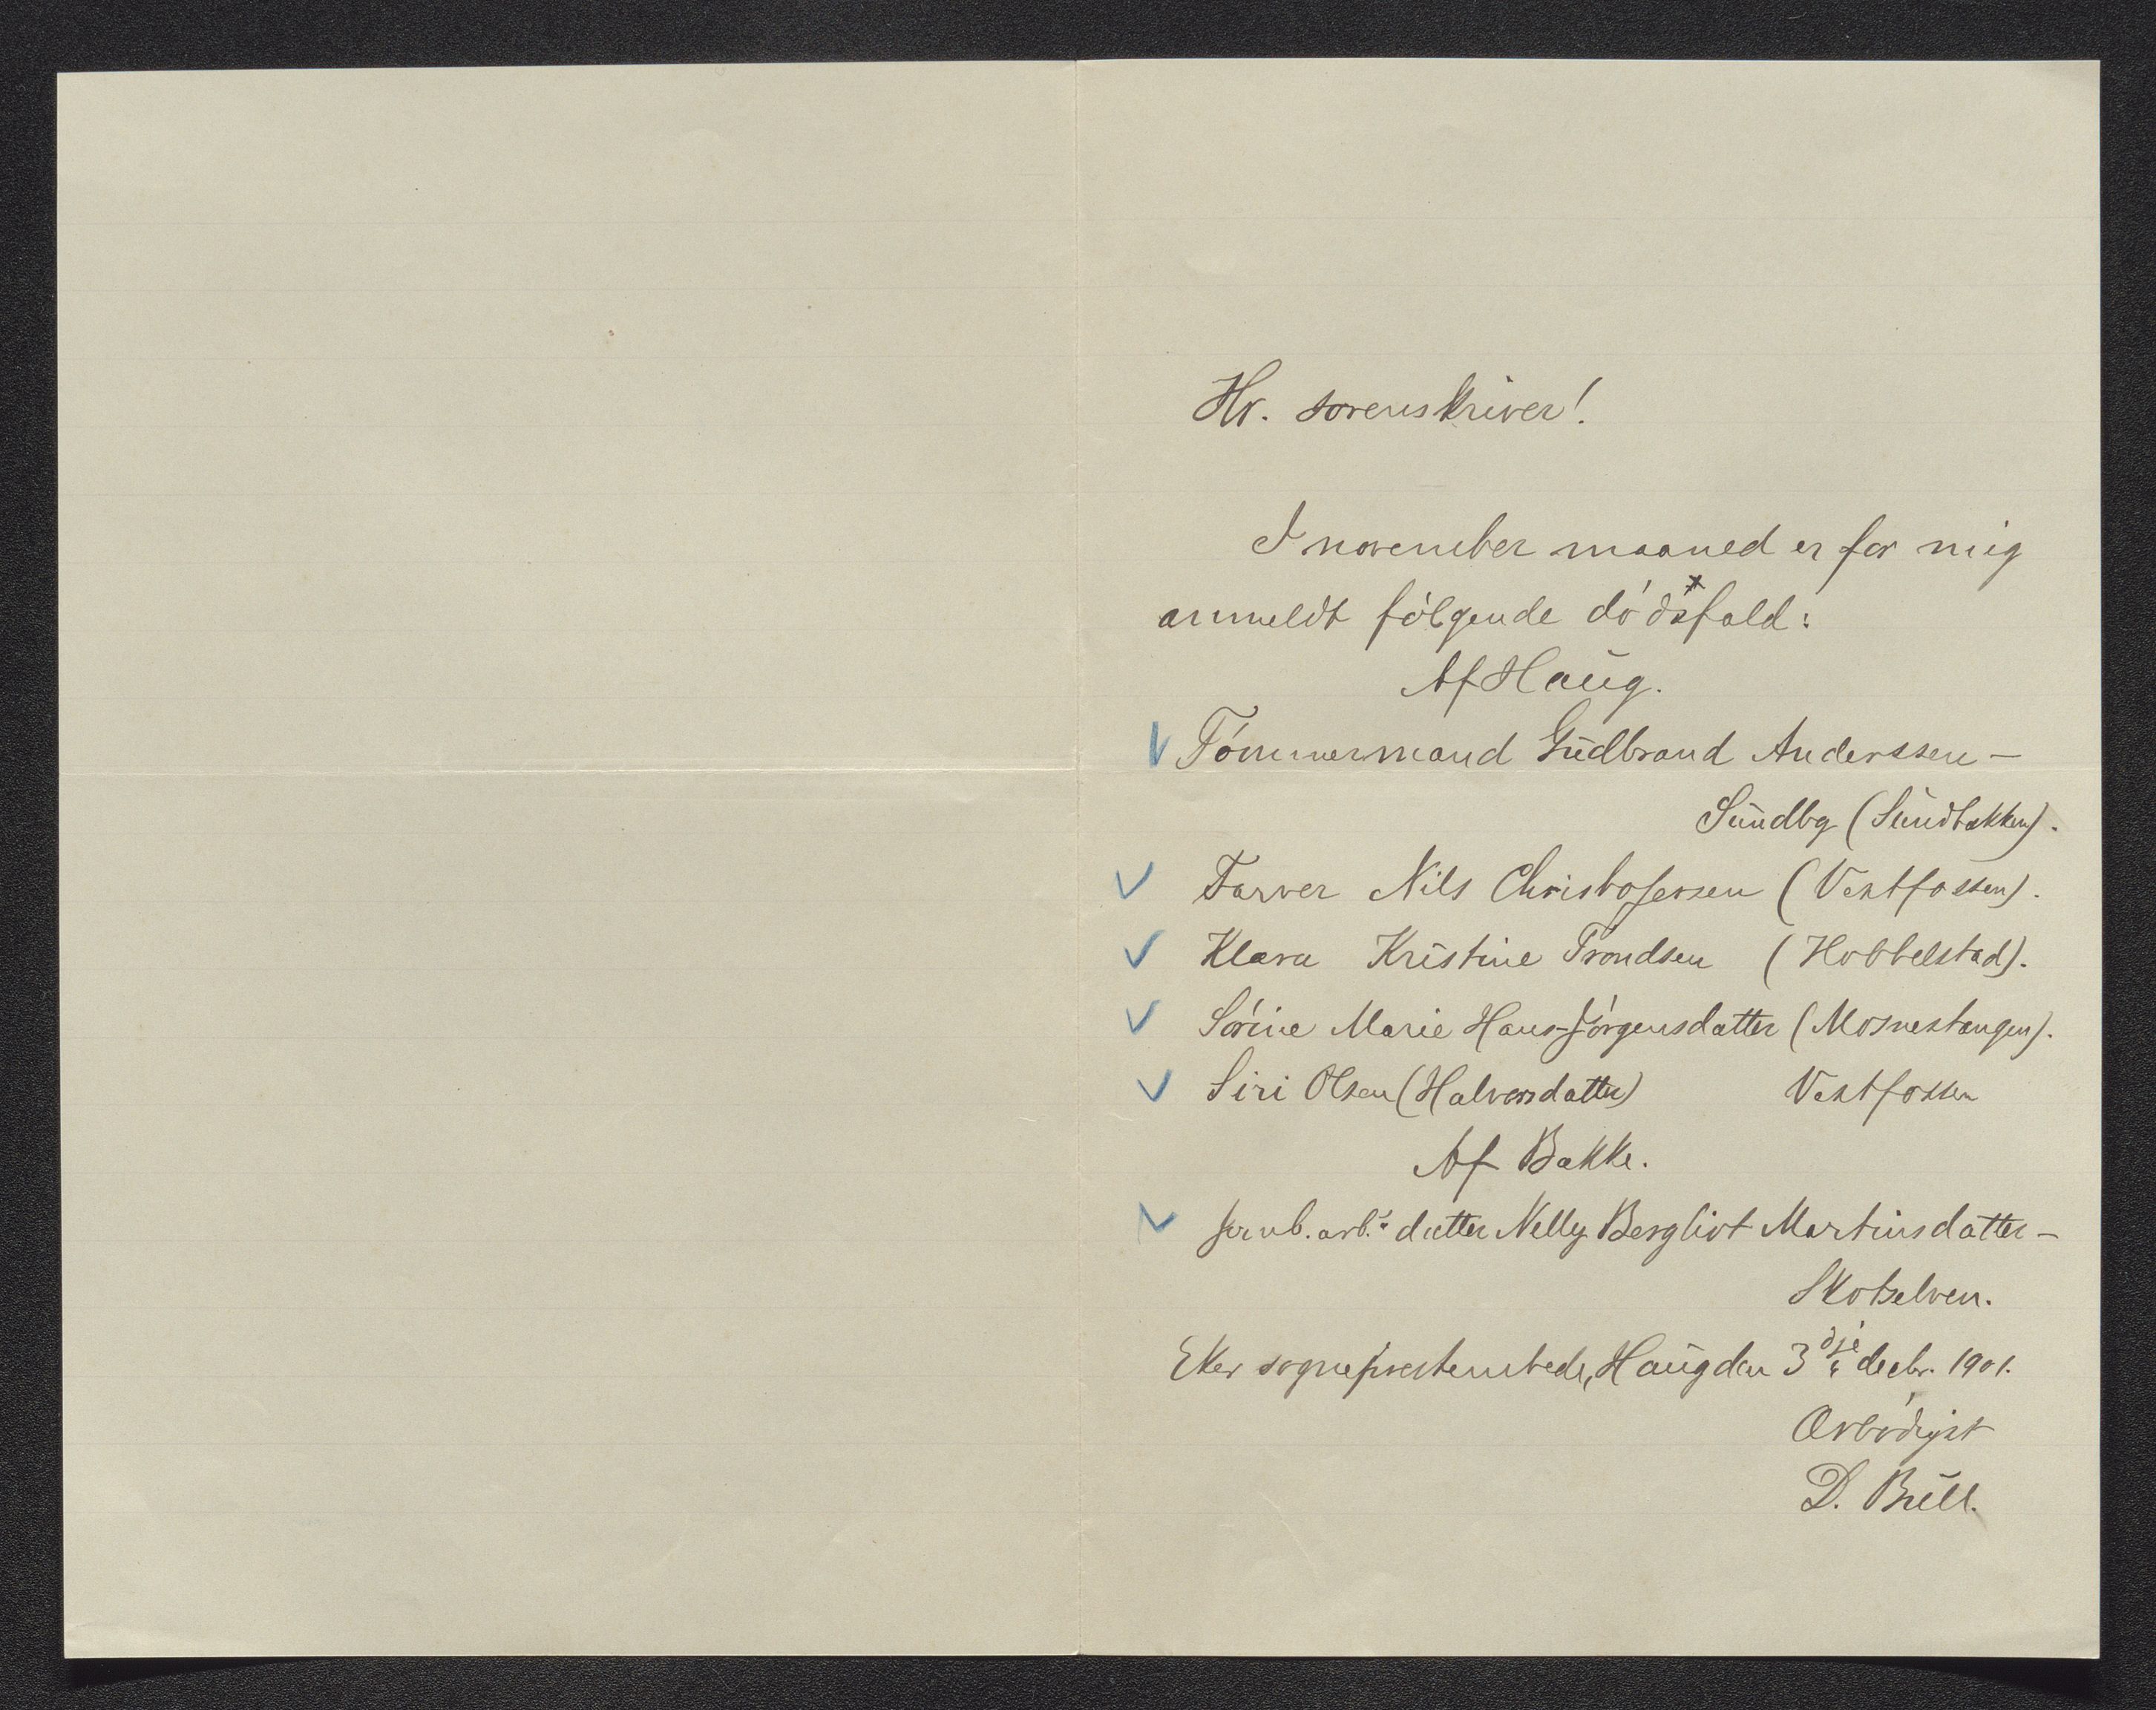 Hr. sorenskriver!
I november maaned er for mig
anmeldt følgende dødsfald:
Af Haug.
Tømmermand Gudbrand Anderssen –
Sundby (Sundbakken).
Farver Nils Christofersen (Vestfossen).
Klara Kristine Trondsen (Hobbelstad).
Sørine Marie Hans-Jørgensdatter (Mosnestangen).
Siri Olsen (Halvorsdatter) Vestfossen
Af Bakke.
Jernb. arb.s datter Nelly Bergliot Martinsdatter –
Skotselven.
Eker sogneprestembede, Haug den 3dje decbr. 1901.
Ærbødigst
D. Bull.